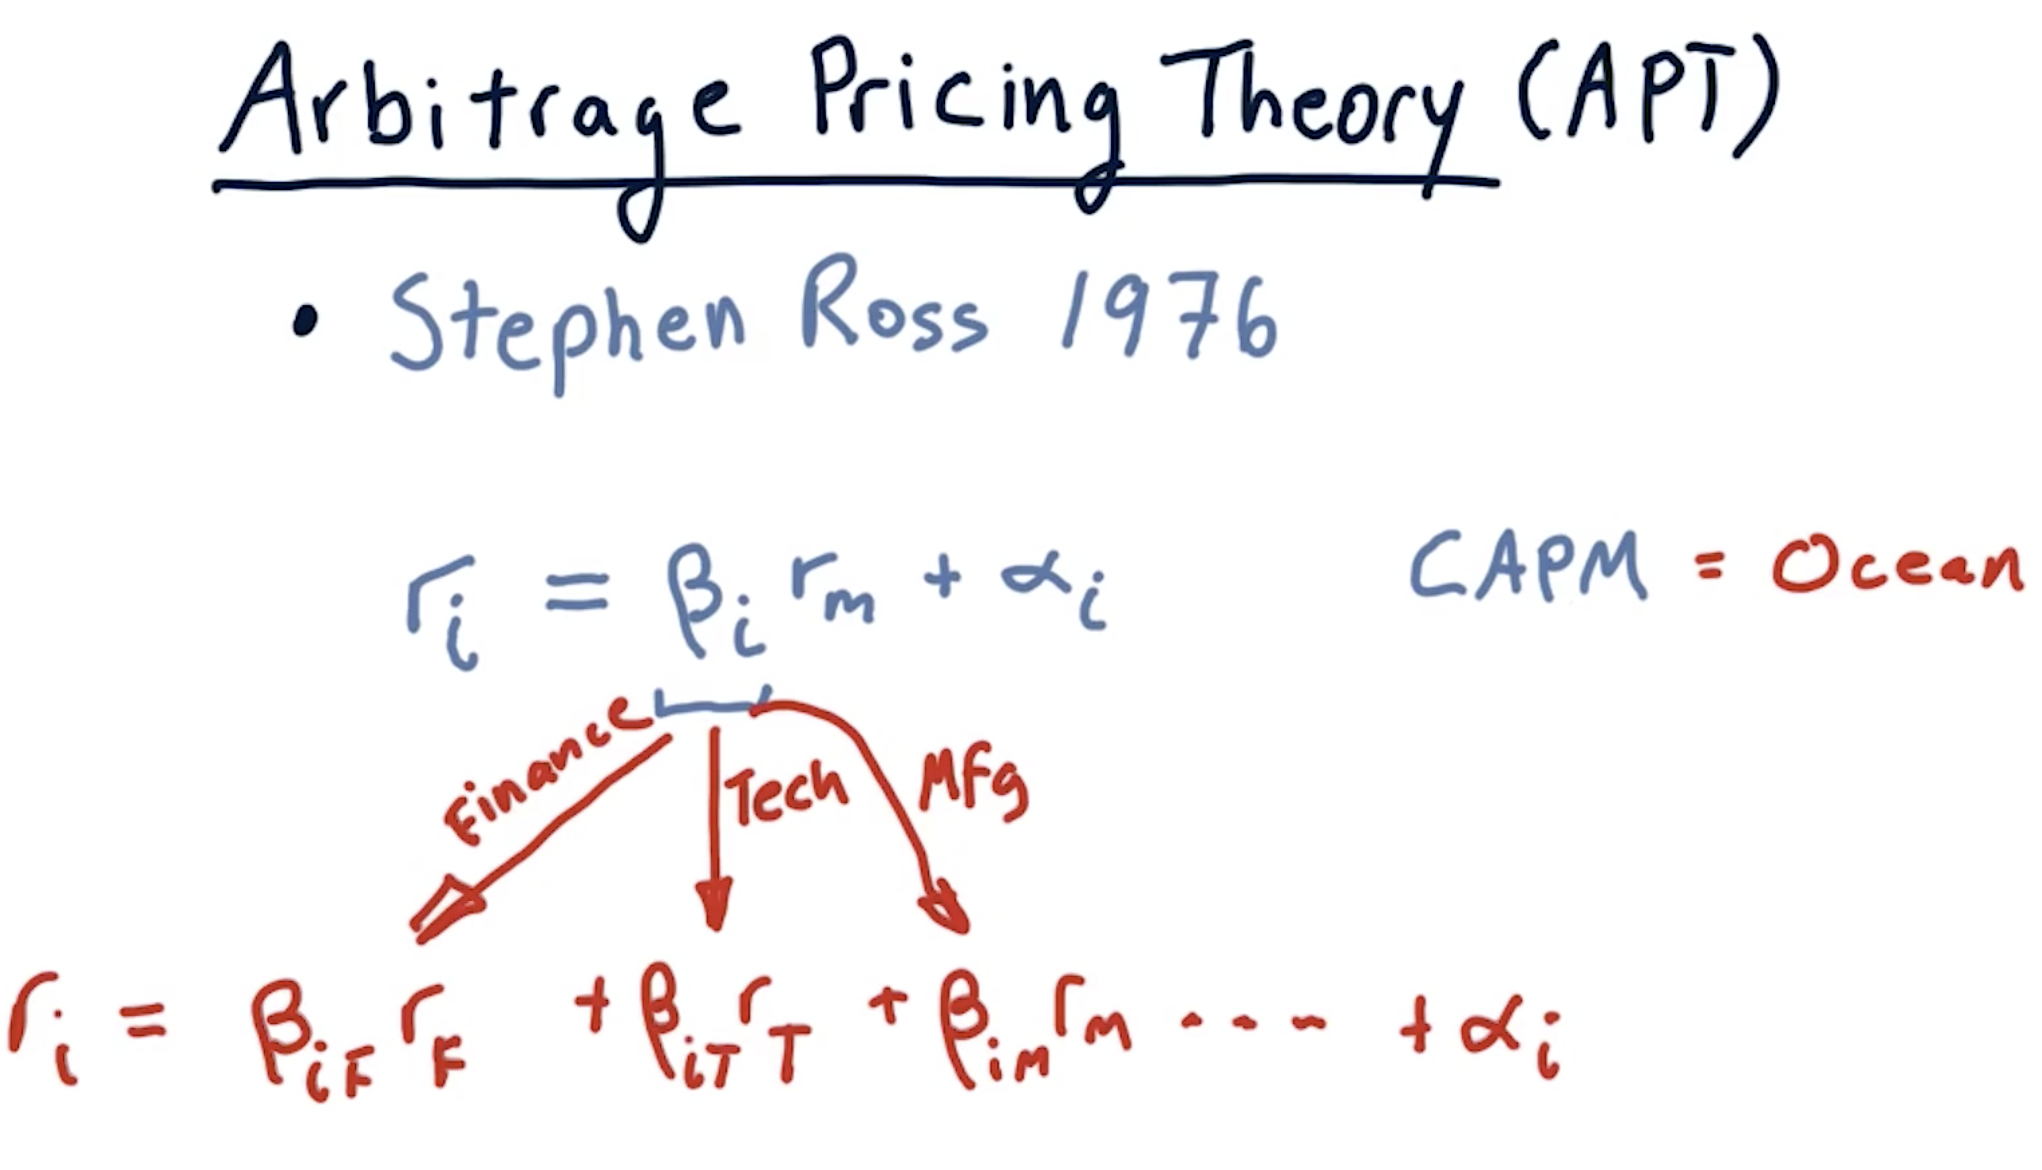 Arbitrage Pricing Theory (APT)
• Stephen Ross 1976
rᵢ = βᵢ rₘ + αᵢ
CAPM = Ocean
Finance
Tech
Mfg
r_i = β_{iF} r_F + β_{iT} r_T + β_{iM} r_M ---- + α_i